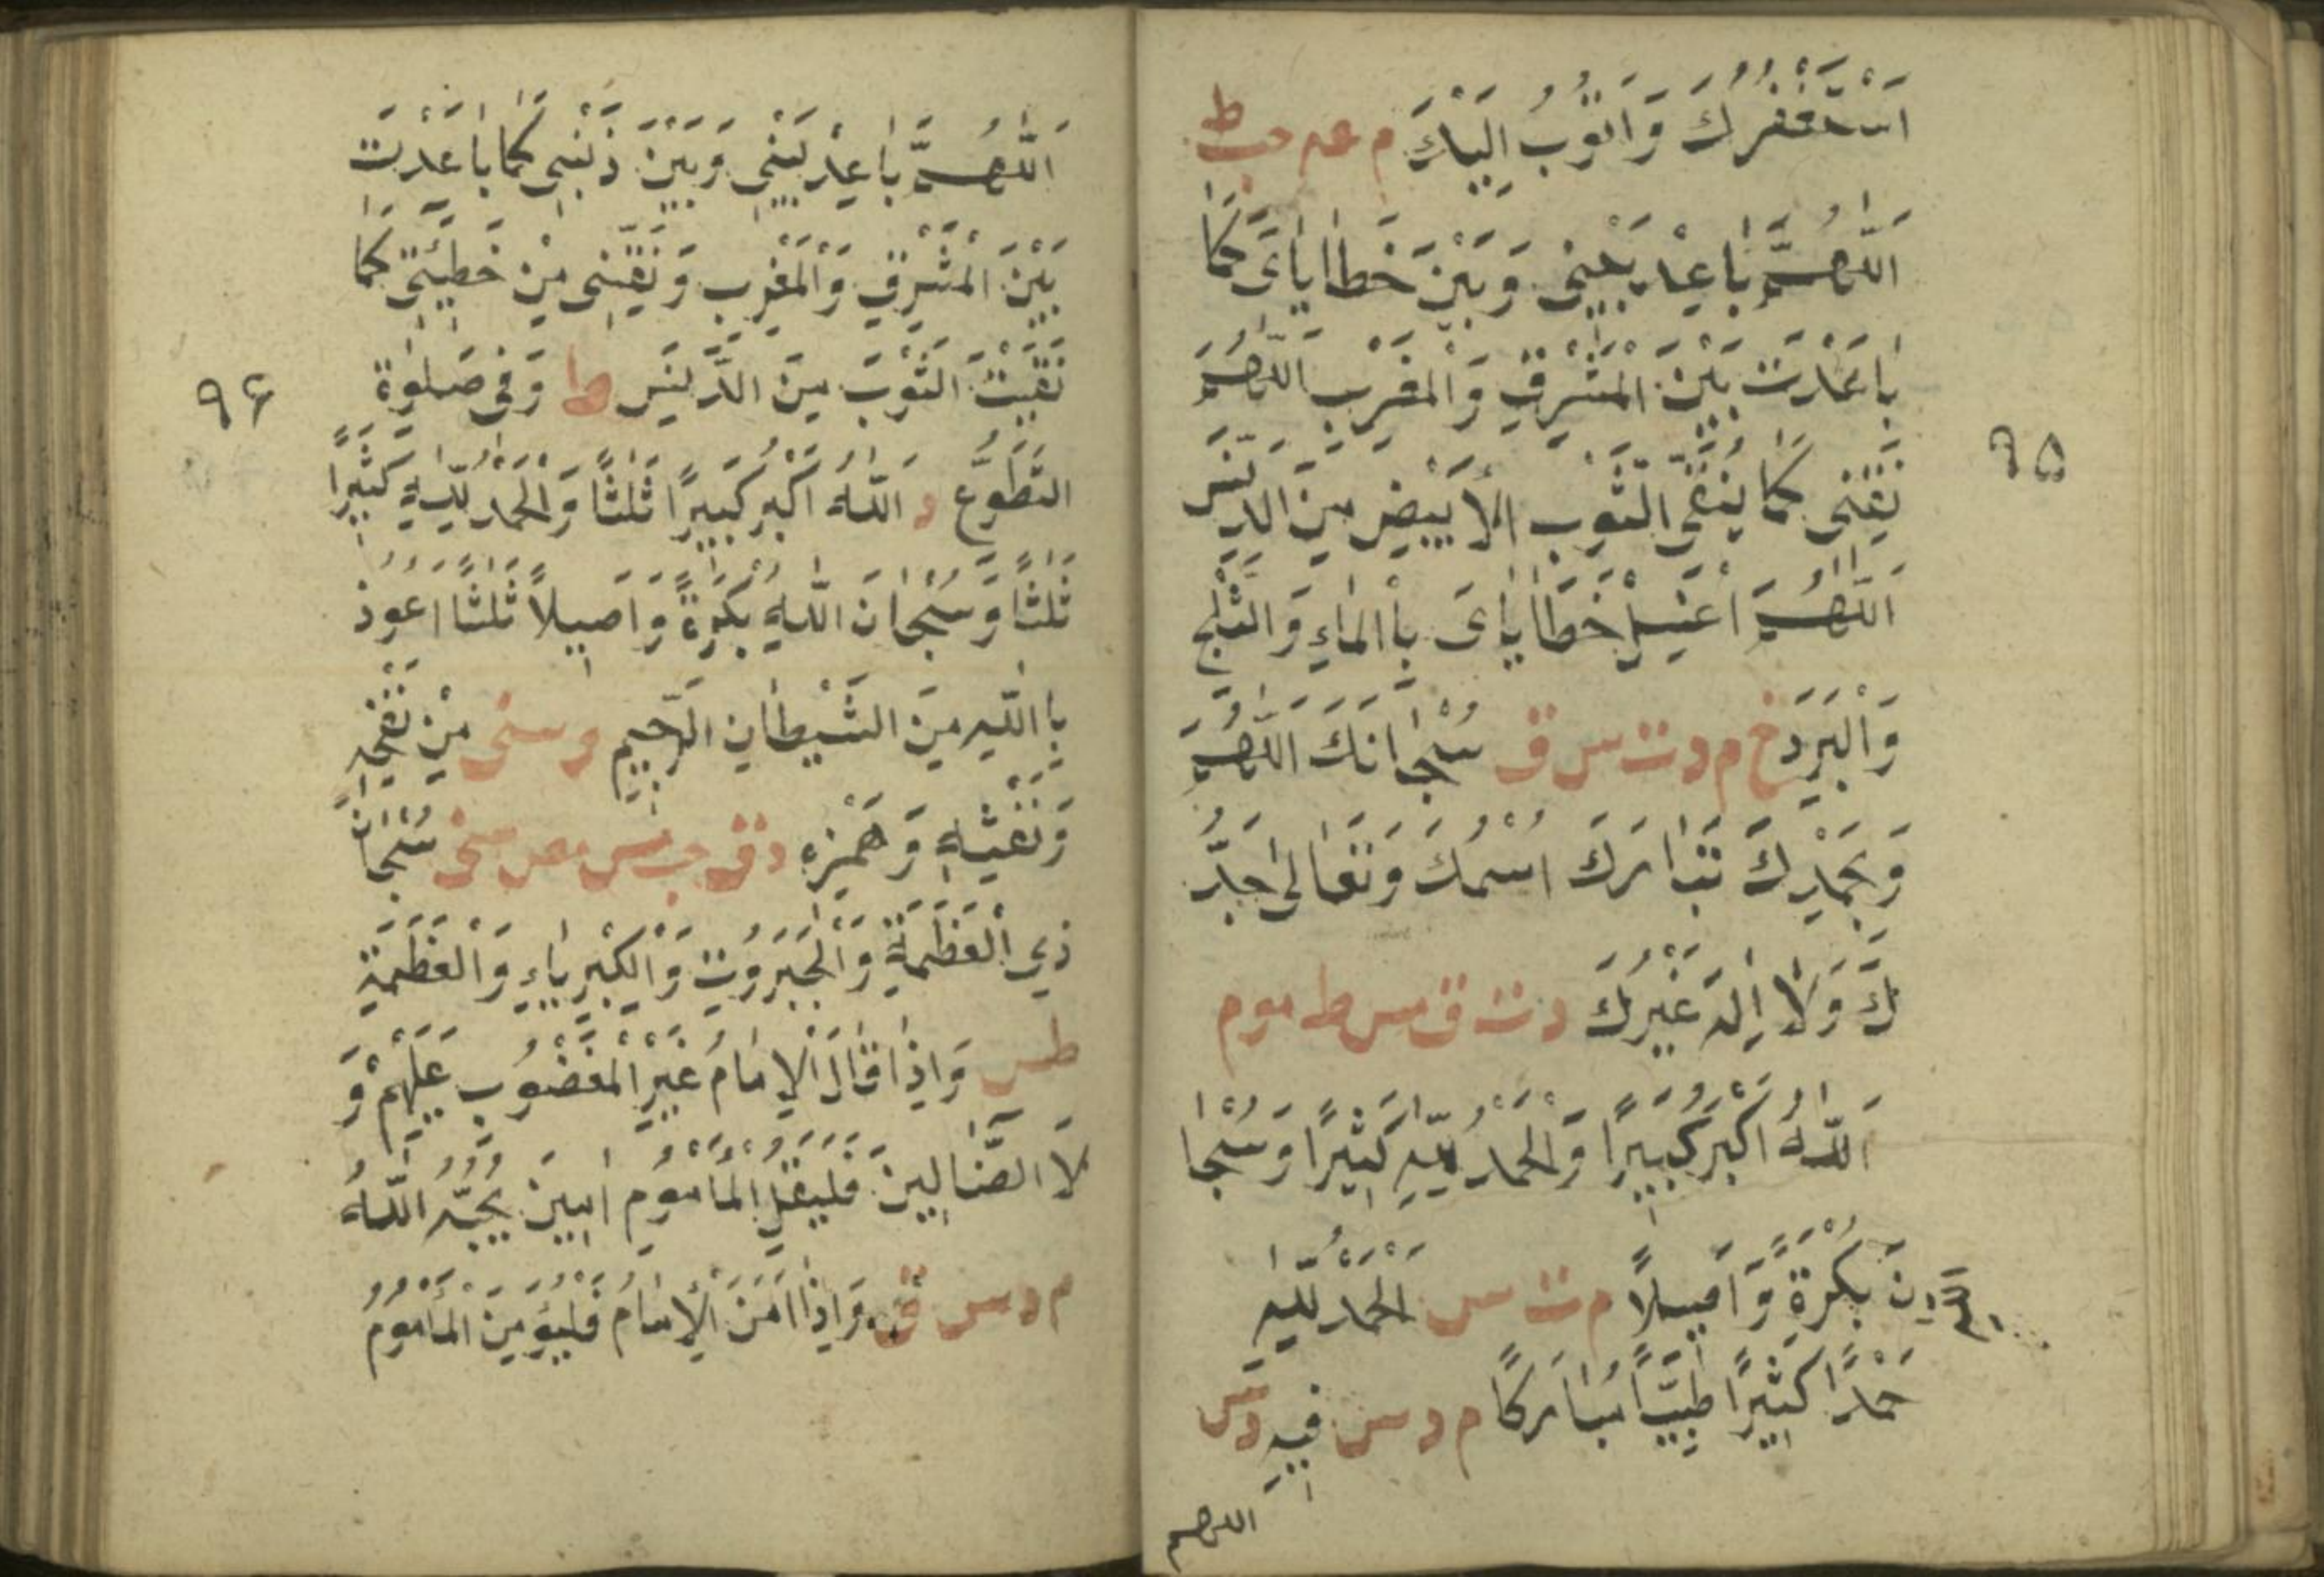 اَسْتَغْفِرُكَ وَاَتُوْبُ اِلَيْكَ م عه حب ط
اَللّٰهُمَّ بَاعِدْ بَيْنِيْ وَبَيْنَ خَطَايَايَ كَمَا
بَاعَدْتَ بَيْنَ الْمَشْرِقِ وَالْمَغْرِبِ اَللّٰهُمَّ
نَقِّنِيْ كَمَا يُنَقَّى الثَّوْبُ الْاَبْيَضُ مِنَ الدَّنَسِ
اَللّٰهُمَّ اغْسِلْ خَطَايَايَ بِالْمَاءِ وَالثَّلْجِ
وَالْبَرَدِ خ م د ت س ق سُبْحَانَكَ اللّٰهُمَّ
وَبِحَمْدِكَ تَبَارَكَ اسْمُكَ وَتَعَالٰى جَدُّ
كَ وَلَا اِلٰهَ غَيْرُكَ د ت ق مس ط موم
اَللّٰهُ اَكْبَرُ كَبِيْرًا وَالْحَمْدُ لِلّٰهِ كَثِيْرًا وَسُبْحَا
نَ بُكْرَةً وَاَصِيْلًا م ت س اَلْحَمْدُ لِلّٰهِ
اللّٰهِ
حَمْدًا كَثِيْرًا طَيِّبًا مُبَارَكًا م د س فِيْهِ د س
اللهم
٩٥
اَللّٰهُمَّ بَاعِدْ بَيْنِيْ وَبَيْنَ ذَنْبِيْ كَمَا بَاعَدْتَ
بَيْنَ الْمَشْرِقِ وَالْمَغْرِبِ وَنَقِّنِيْ مِنْ خَطِيْئَتِيْ كَمَا
نَقَّيْتَ الثَّوْبَ مِنَ الدَّنَسِ ط وَفِيْ صَلٰوةِ
التَّطَوُّعِ د اَللّٰهُ اَكْبَرُ كَبِيْرًا ثَلٰثًا وَالْحَمْدُ لِلّٰهِ كَثِيْرًا
ثَلٰثًا وَسُبْحَانَ اللّٰهِ بُكْرَةً وَاَصِيْلًا ثَلٰثًا اَعُوْذُ
بِاللّٰهِ مِنَ الشَّيْطَانِ الرَّجِيْمِ مِنْ نَفْخِهٖ
وَنَفْثِهٖ وَهَمْزِهٖ د ق حب مس مص سنى سُبْحَانَ
ذِي الْعَظَمَةِ وَالْجَبَرُوْتِ وَالْكِبْرِيَاءِ وَالْعَظَمَةِ
طس وَاِذَا قَالَ الْاِمَامُ غَيْرِ الْمَغْضُوْبِ عَلَيْهِمْ وَ
لَا الضَّالِيْنَ فَلْيَقُلِ الْمَأْمُوْمُ اٰمِيْنَ يُحِبُّهُ اللّٰهُ
م د س ق وَاِذَا اَمَّنَ الْاِمَامُ فَلْيُؤَمِّنِ الْمَأْمُوْمُ
٩٦